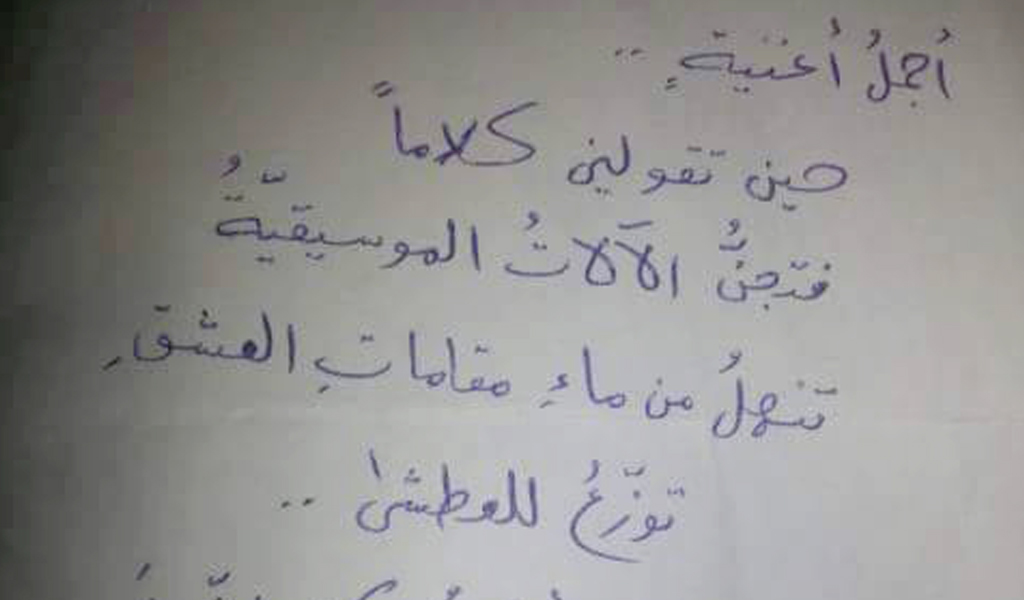 أجملُ أغنيةٍ ..
حين تقولين كلاماً
فتجنُّ الآلاتُ الموسيقيّةُ
تنهلُ من ماءِ مقاماتِ العشقِ
توزّعُ للعطشىٰ ..